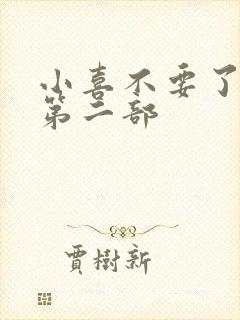 小喜不要了
第二部
賈樹新